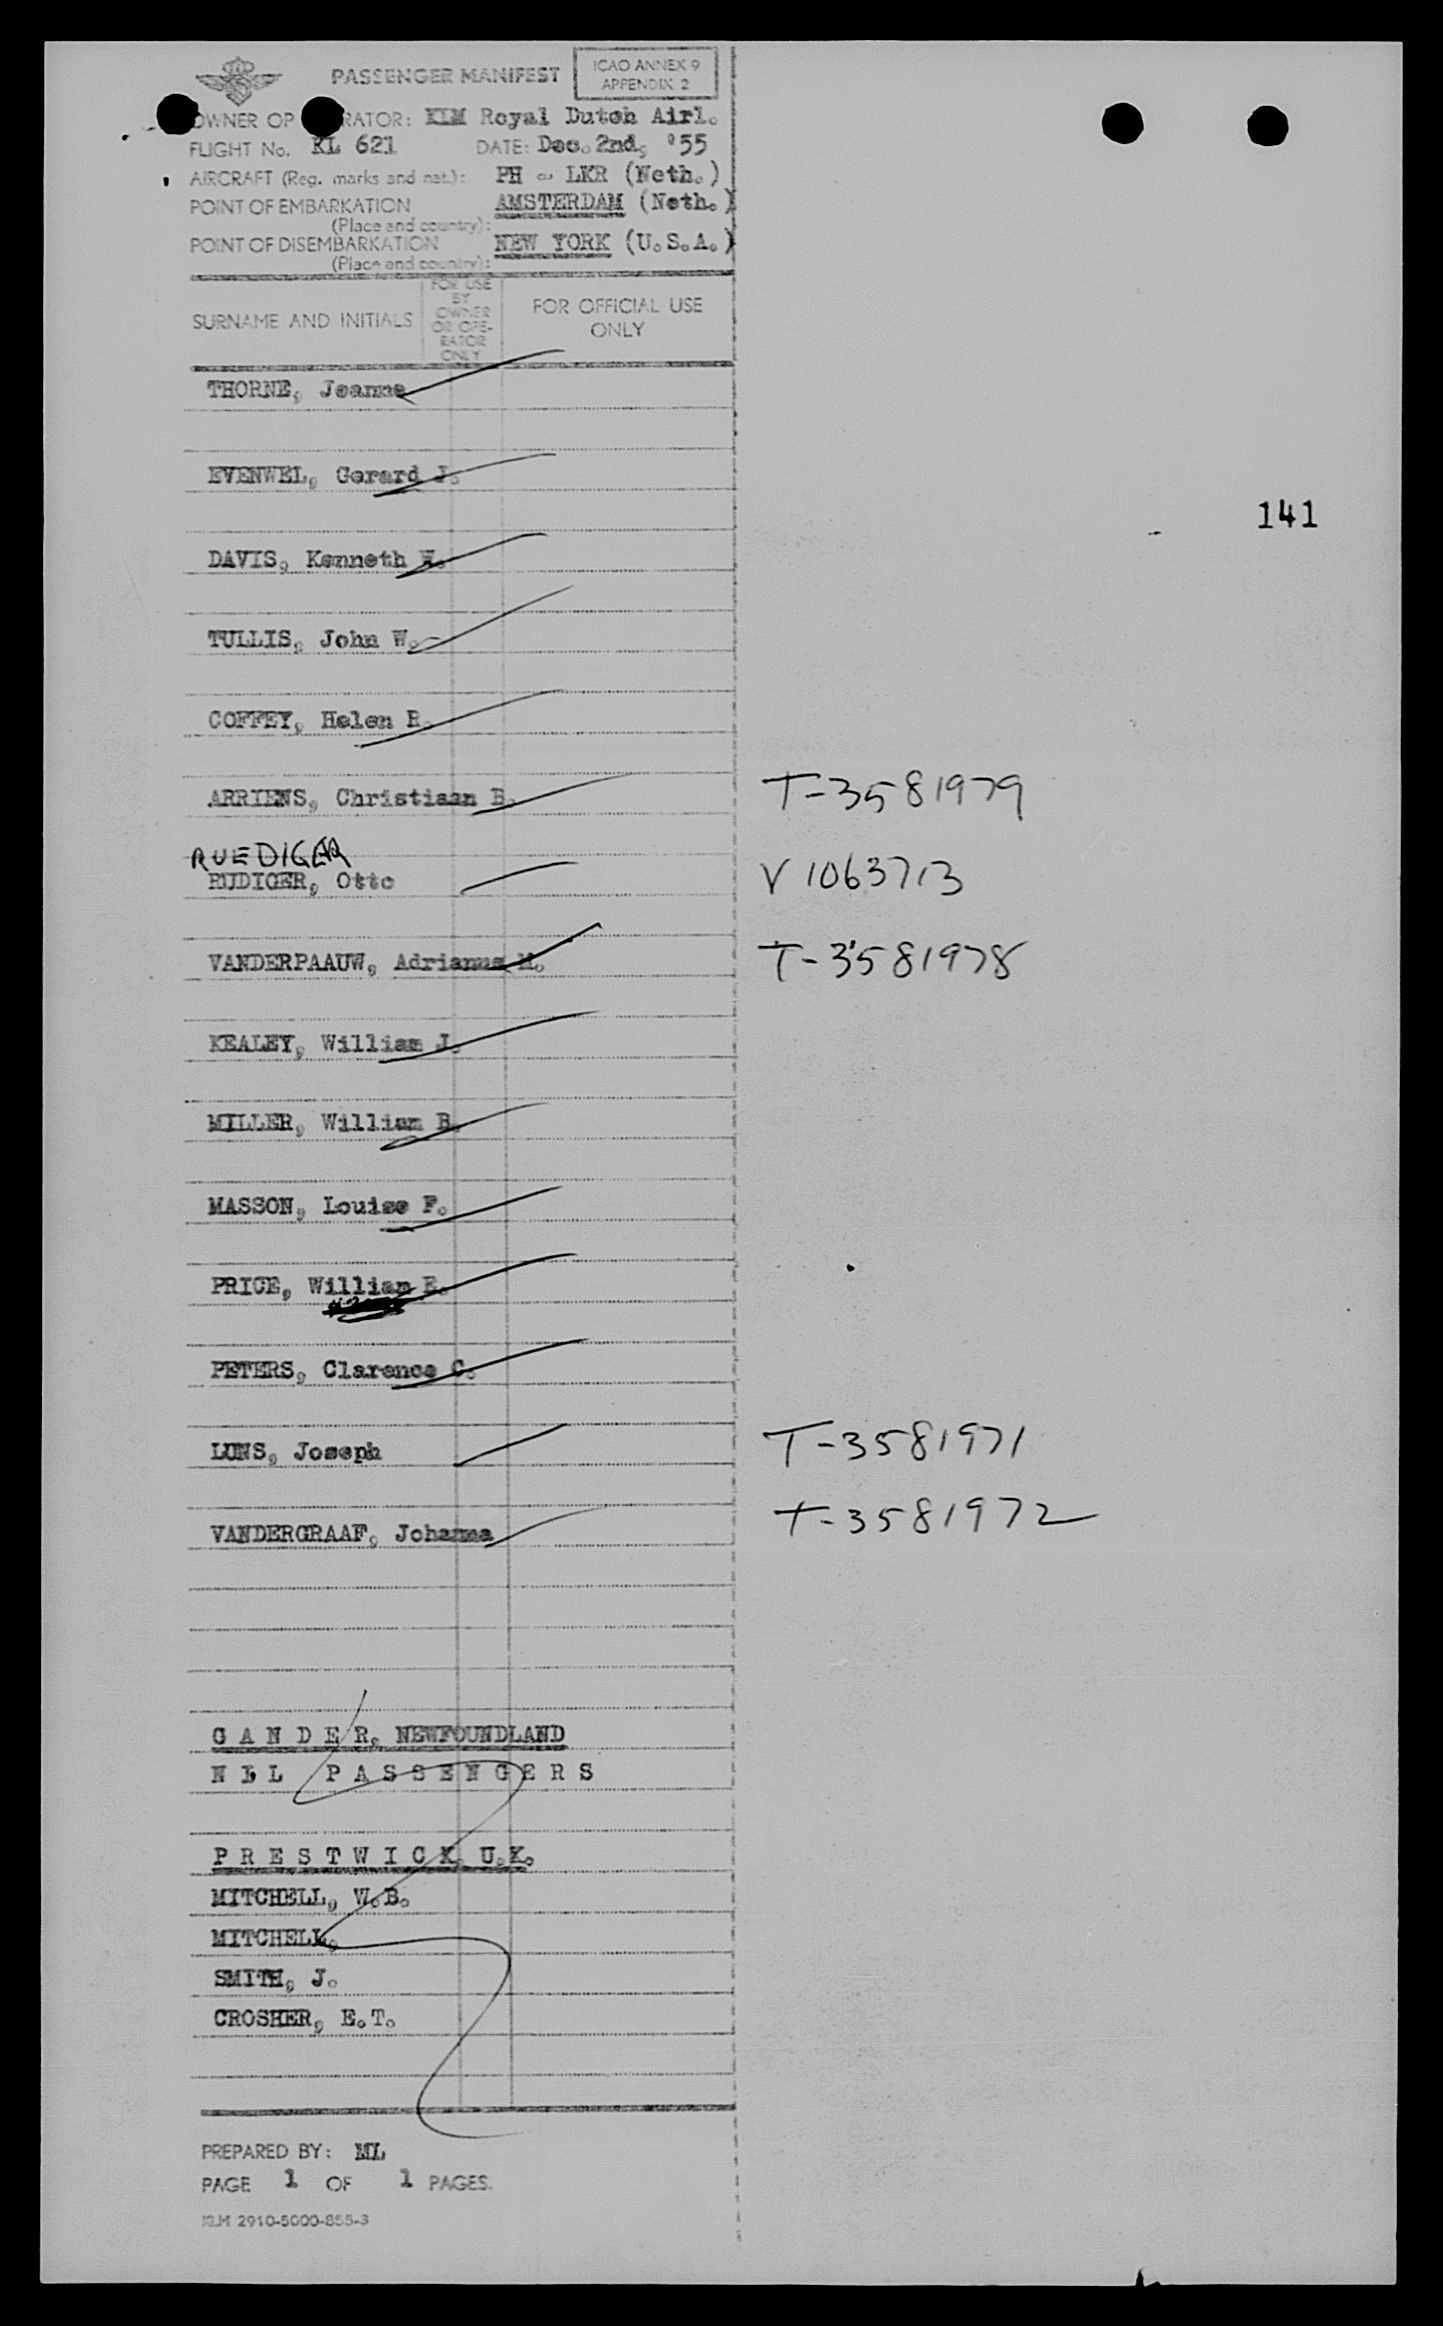 PASSENGER MANIFEST
ICAO ANNEX 9
APPENDIX 2
OWNER OP RATOR: KLM Royal Dutch Airl.
FLIGHT No. KL 621 DATE: Dec. 2nd, '55
AIRCRAFT (Reg. marks and nat.): PH - LKR (Neth.)
POINT OF EMBARKATION AMSTERDAM (Neth.)
(Place and country):
POINT OF DISEMBARKATION NEW YORK (U.S.A.)
(Place and country):
SURNAME AND INITIALS
FOR USE
BY
OWNER
OR OPE-
RATOR
ONLY
FOR OFFICIAL USE
ONLY
THORNE, Jeanne
EVENWEL, Gerard J.
141
DAVIS, Kenneth W.
TULLIS, John W.
COFFEY, Helen R.
ARRIENS, Christiaan B. T-3581979
RUEDIGER
RUDIGER, Otto V 1063713
VANDERPAAUW, Adrianus M. T-3581978
KEALEY, William J.
MILLER, William B.
MASSON, Louise F.
PRICE, William E.
PETERS, Clarence C.
LUNS, Joseph T-3581971
VANDERGRAAF, Johanna T-3581972
G A N D E R, NEWFOUNDLAND
N I L P A S S E N G E R S
P R E S T W I C K, U.K.
MITCHELL, W.B.
MITCHELL,
SMITH, J.
CROSHER, E.T.
PREPARED BY: ML
PAGE 1 OF 1 PAGES.
KLM 2910-5000-855-3